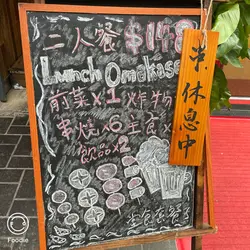 二人餐 $148
Lunch Omakase
前菜x1 炸物
串燒x6 主食x
飲品x2
休息中
Foodie